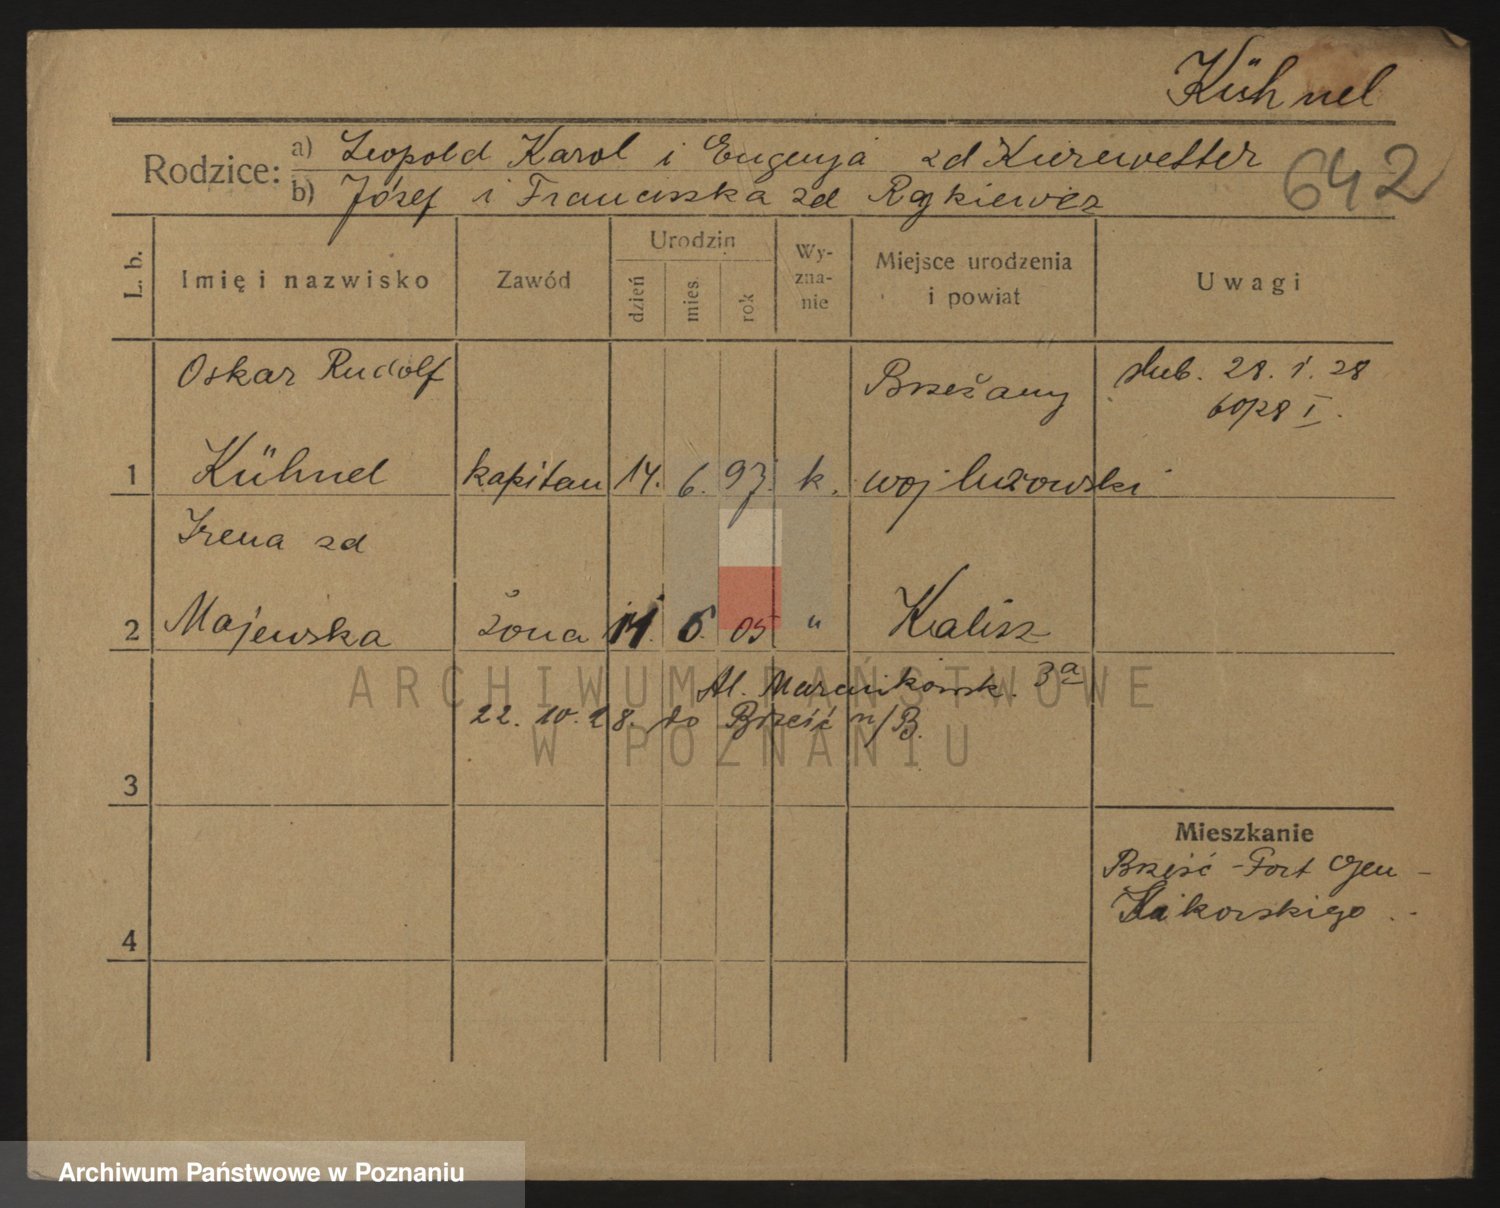 Kühnel
Rodzice: a) Leopold Karol i Eugenja zd Kurewetter
642
b) Józef i Franciszka zd
L. b.
Imię i nazwisko
Zawód
Urodzin
dzień
mies.
rok
Wy-
zna-
nie
Miejsce urodzenia
i powiat
Uwagi
Oskar Rudolf
Brzeżany
ślub. 28. 1. 28
I.
1 Kühnel kapitan 14. 6. 97. k. woj lwowski
Irena zd
2 Majewska żona 6. 05 " Kalisz
Al. Marcinkowsk. 3a
22. 10. 28. do Brześć n/B.
3
Mieszkanie
Brześć - Fort Gen -
4
ARCHIWUM PAŃSTWOWE
W POZNANIU
Archiwum Państwowe w Poznaniu